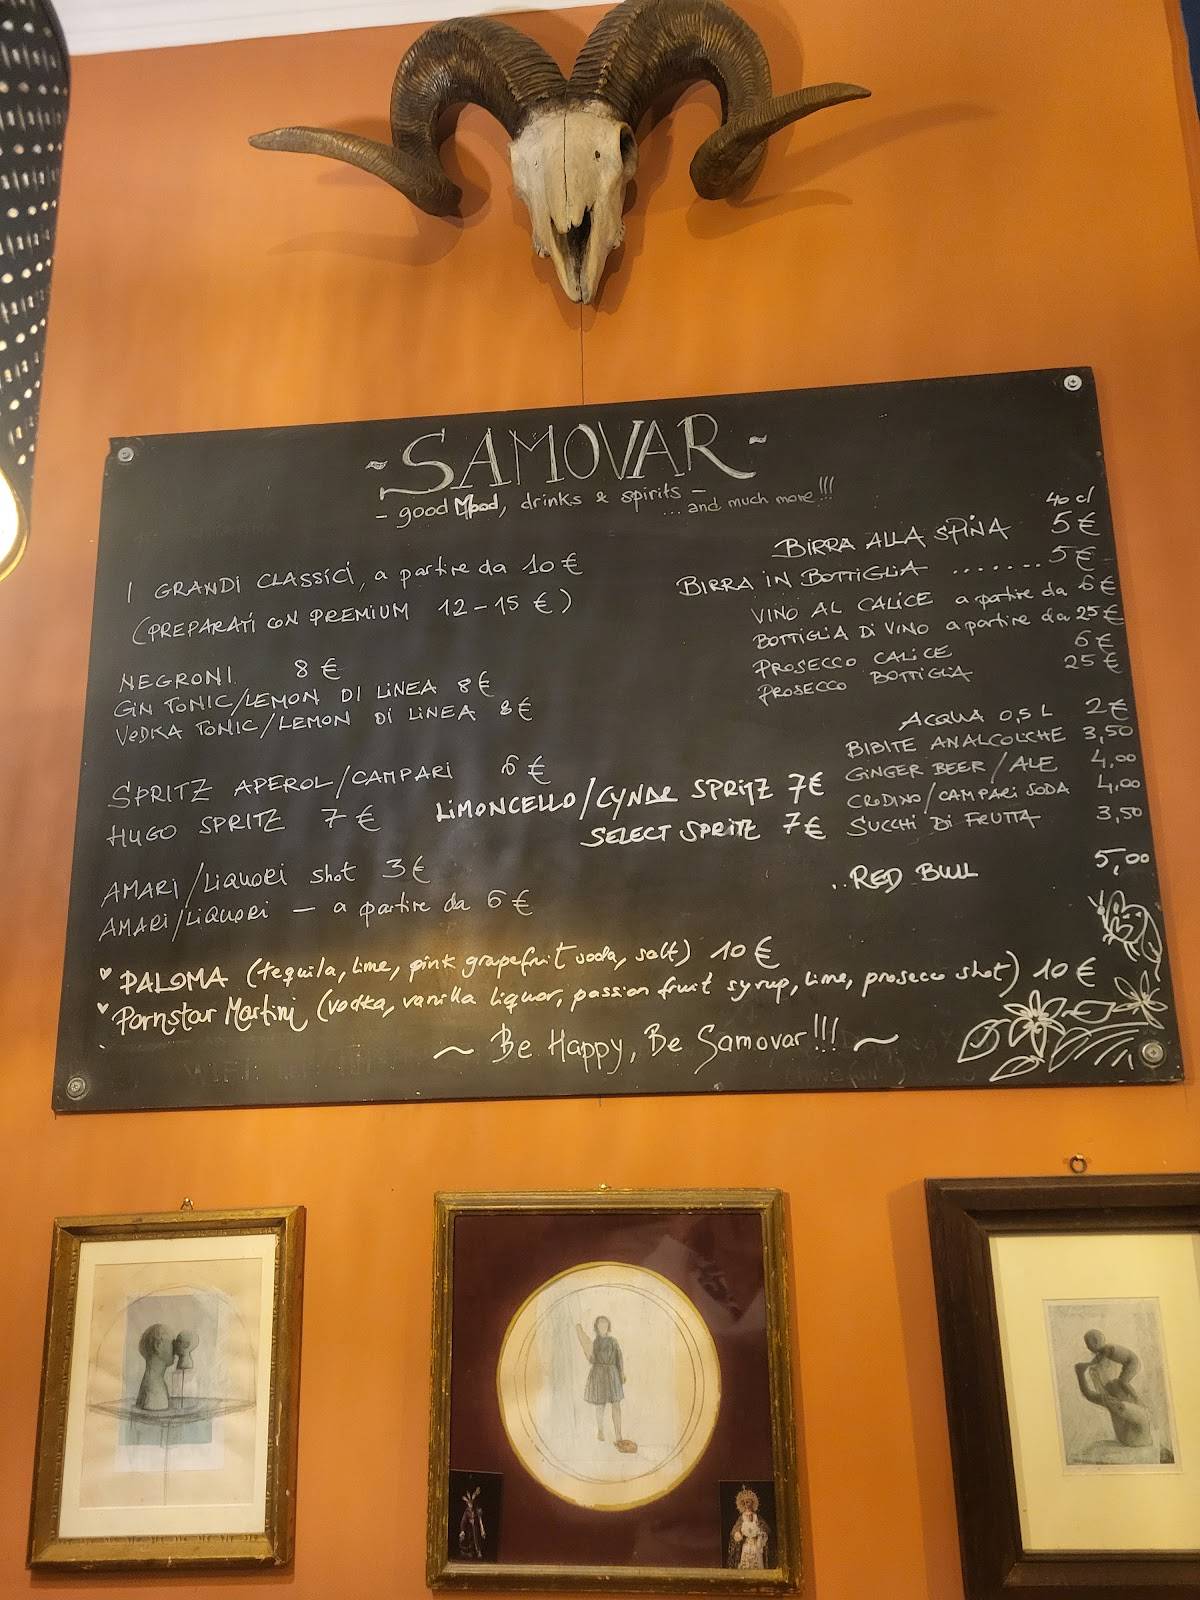 ~ SAMOVAR ~
- good Mood, drinks & spirits -
... and much more!!!
I GRANDI CLASSICI, a partire da 10 €
(PREPARATI CON PREMIUM 12 - 15 €)
NEGRONI 8 €
GIN TONIC/LEMON DI LINEA 8 €
VODKA TONIC/LEMON DI LINEA 8 €
SPRITZ APEROL/CAMPARI 6 €
HUGO SPRITZ 7 €
LIMONCELLO/CYNAR SPRITZ 7 €
SELECT SPRITZ 7 €
AMARI/LIQUORI shot 3 €
AMARI/LIQUORI — a partire da 6 €
40 cl
BIRRA ALLA SPINA 5 €
BIRRA IN BOTTIGLIA ....... 5 €
VINO AL CALICE a partire da 6 €
BOTTIGLIA DI VINO a partire da 25 €
PROSECCO CALICE 6 €
PROSECCO BOTTIGLIA 25 €
ACQUA 0,5 L 2 €
BIBITE ANALCOLICHE 3,50
GINGER BEER/ALE 4,00
CRODINO/CAMPARI SODA 4,00
SUCCHI DI FRUTTA 3,50
..RED BULL 5,00
♥ PALOMA (tequila, lime, pink grapefruit soda, salt) 10 €
♥ Pornstar Martini (vodka, vanilla liquor, passion fruit syrup, lime, prosecco shot) 10 €
~ Be Happy, Be Samovar!!! ~